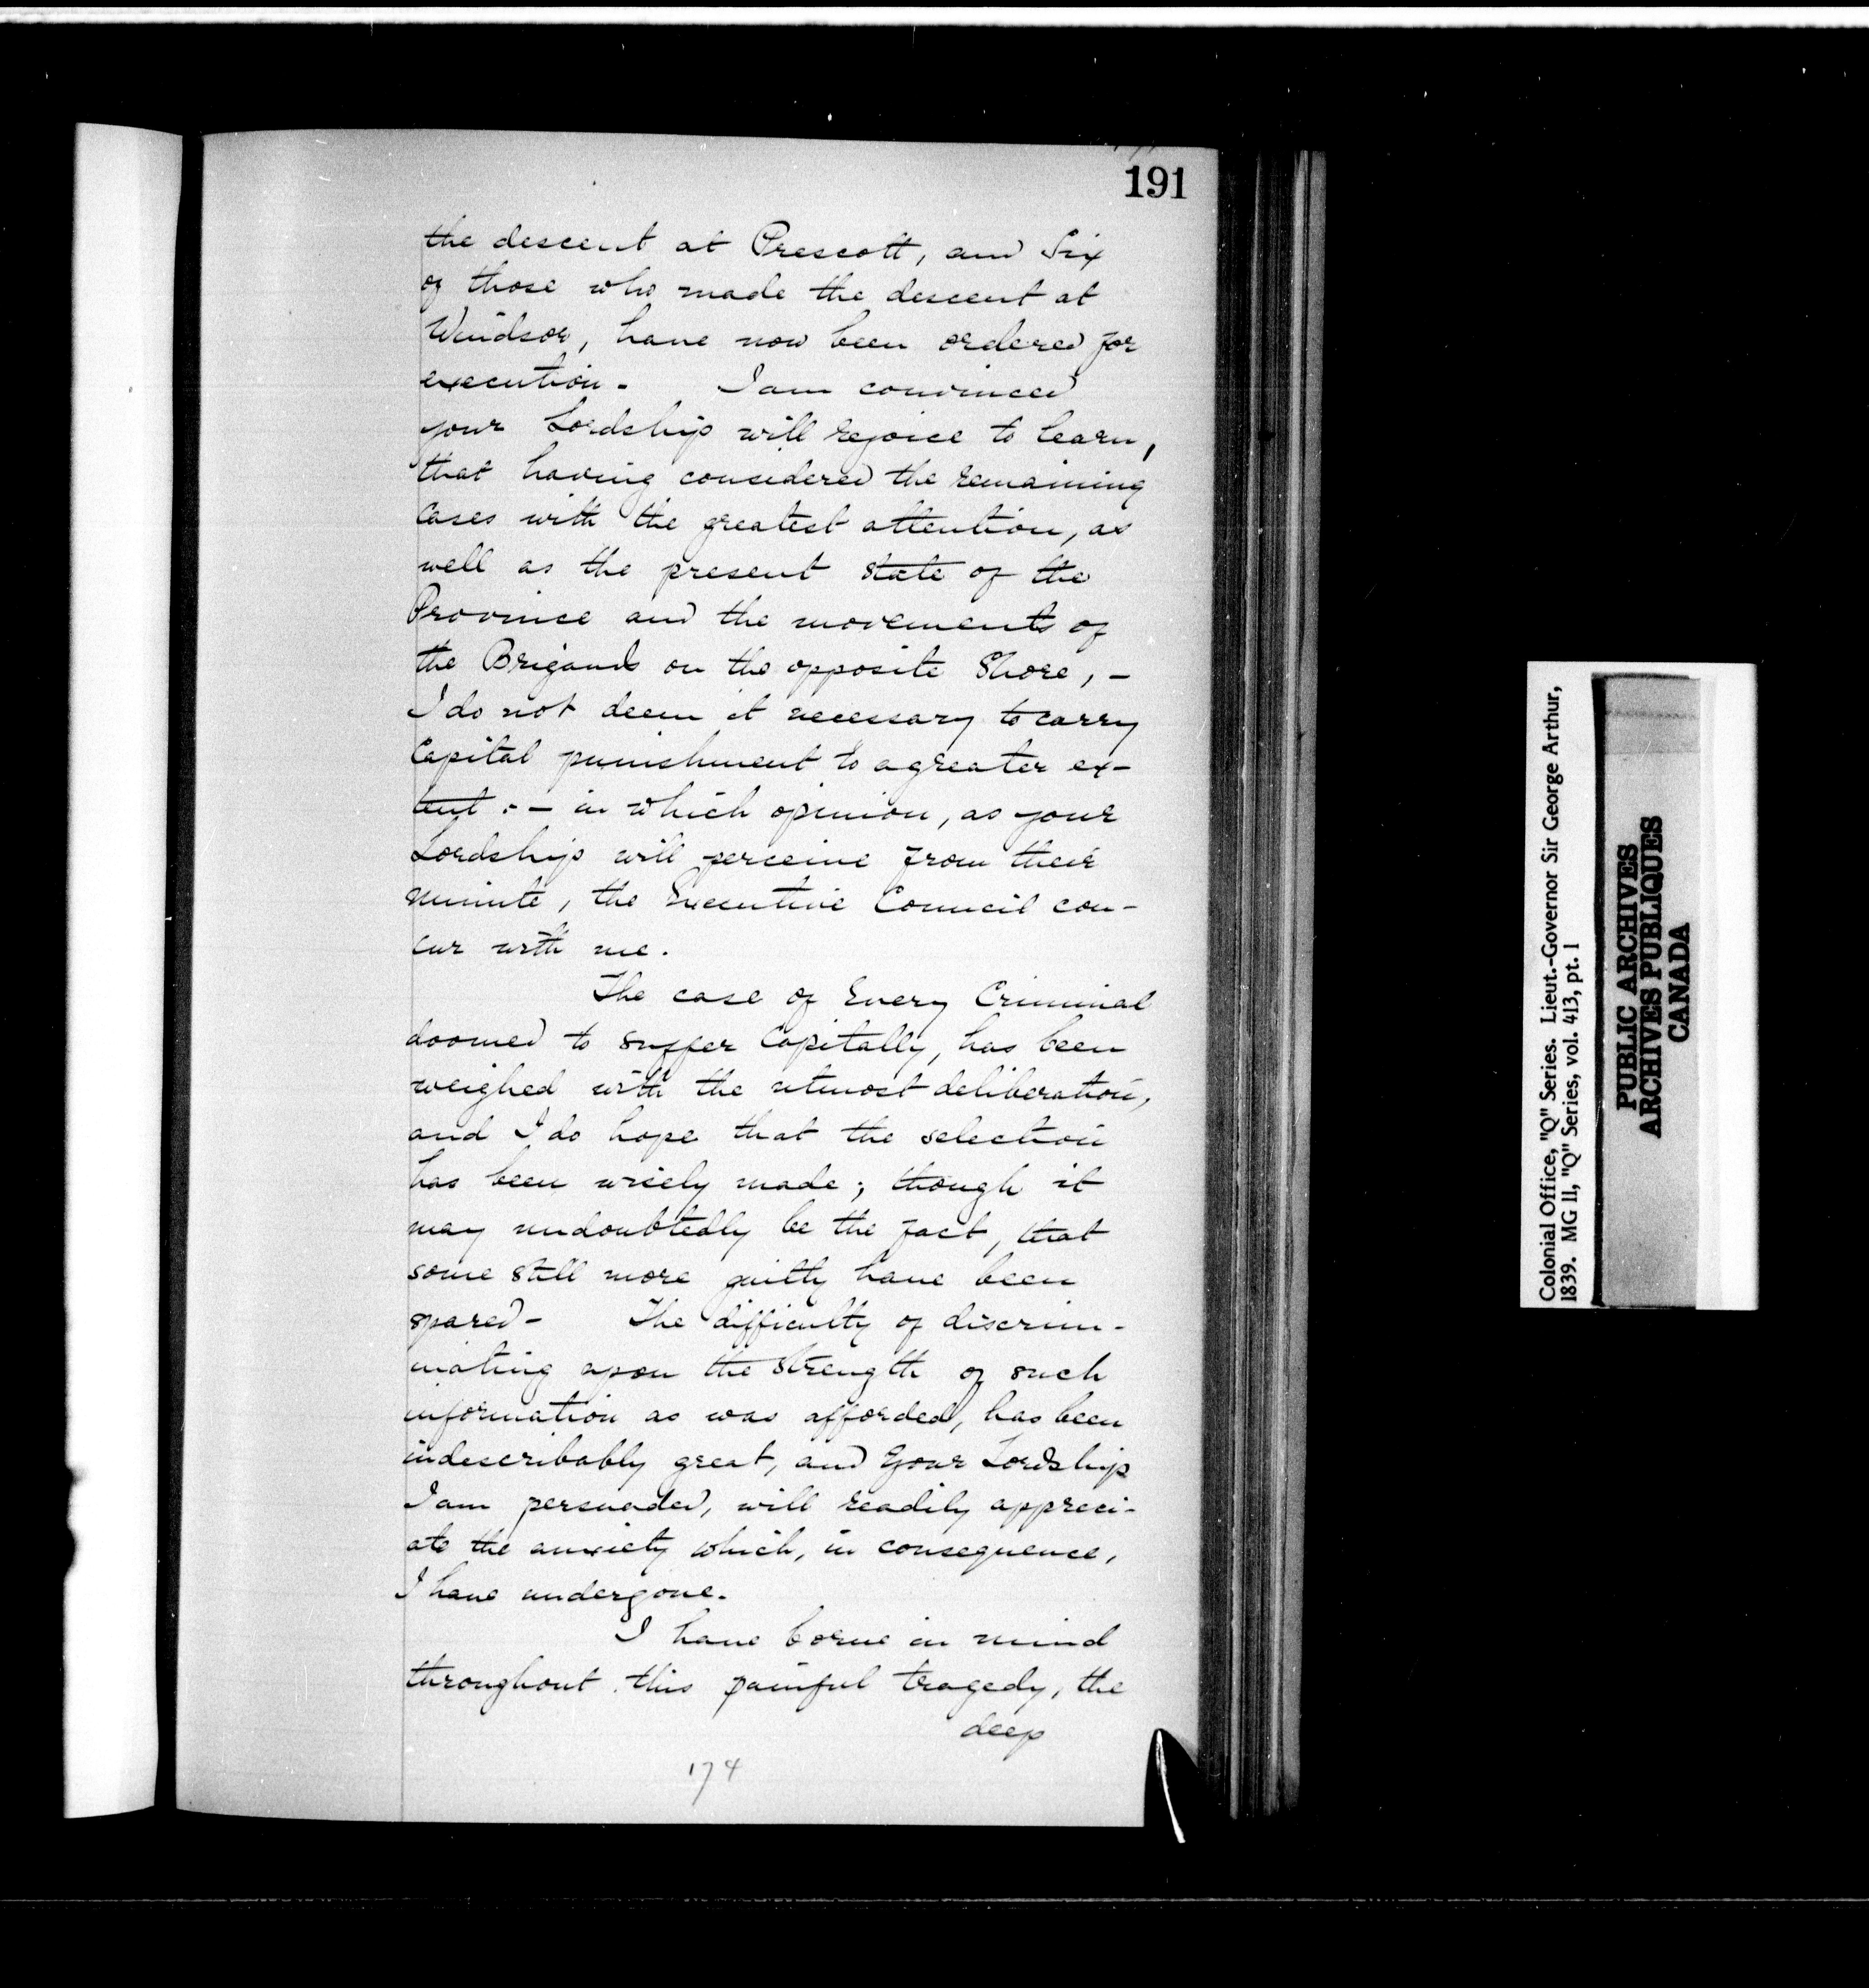 191
the descent at Prescott, and Six
of those who made the descent at
Windsor, have now been ordered for
execution. I am convinced
your Lordship will rejoice to learn,
that having considered the remaining
cases with the greatest attention, as
well as the present state of the
Province and the movements of
the Brigands on the opposite Shore, –
I do not deem it necessary to carry
Capital punishment to a greater ex-
tent :- in which opinion, as your
Lordship will perceive from their
minute, the Executive Council con-
cur with me.
The case of Every Criminal
doomed to suffer Capitally, has been
weighed with the utmost deliberation,
and I do hope that the selection
has been wisely made; though it
may undoubtedly be the fact, that
some still more guilty have been
spared – The difficulty of discrim-
inating upon the strength of such
information as was afforded, has been
indescribably great, and Your Lordship
I am persuaded, will readily appreci-
ate the anxiety which, in consequence,
I have undergone.
I have borne in mind
throughout this painful tragedy, the
deep
174
Colonial Office, "Q" Series. Lieut.-Governor Sir George Arthur,
1839. MG 11, "Q" Series, vol. 413, pt. 1
PUBLIC ARCHIVES
ARCHIVES PUBLIQUES
CANADA